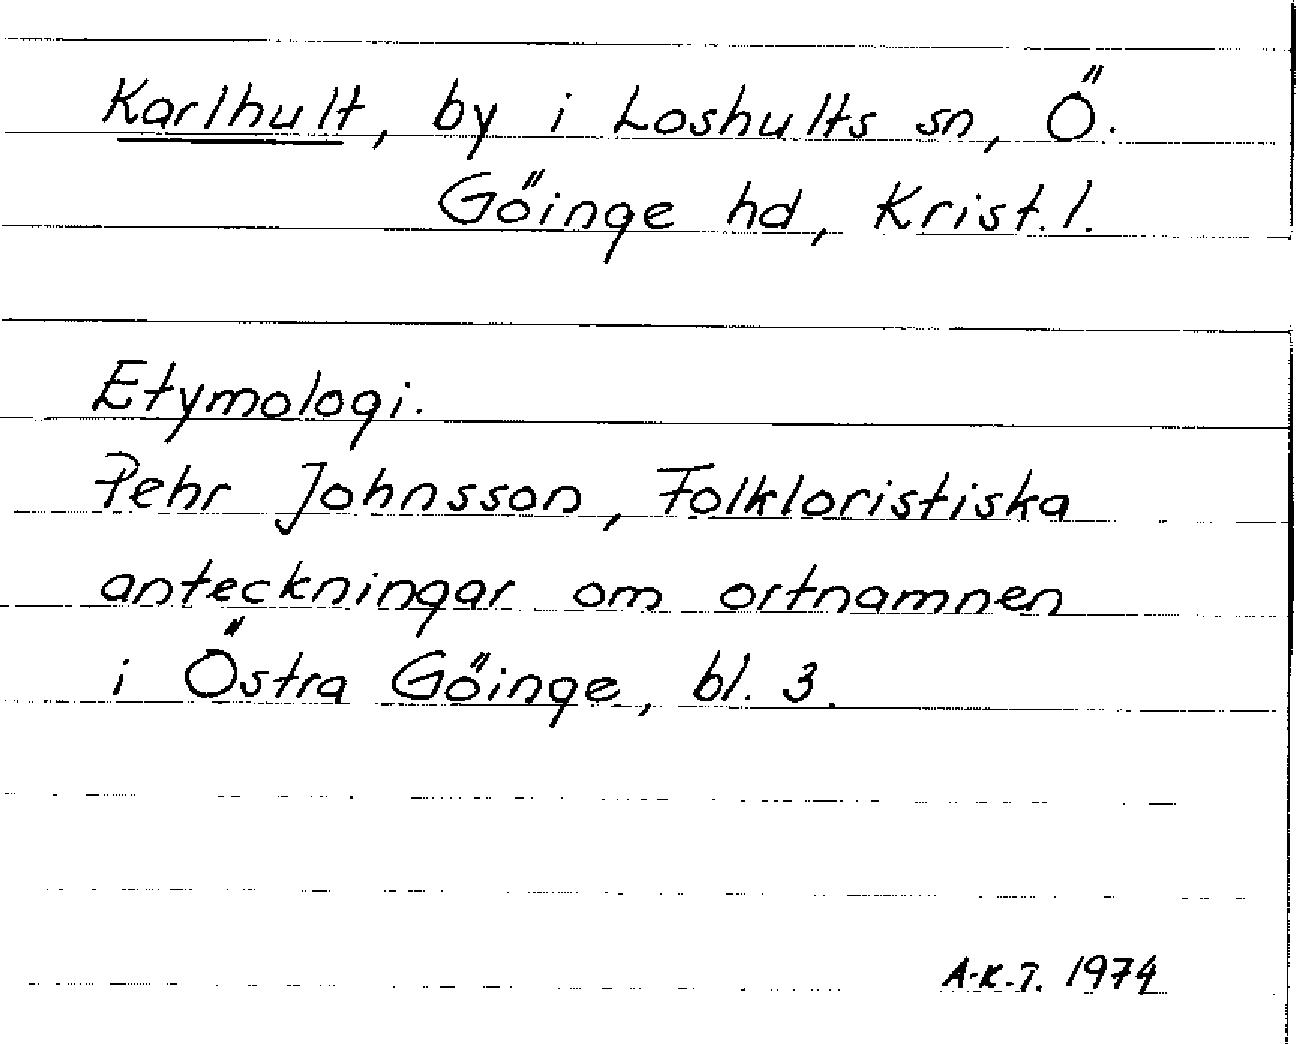 Karlhult, by i Loshults sn, Ö.
Göinge hd, Krist. l.
Etymologi.
Pehr Johnsson, Folkloristiska
anteckningar om ortnamnen
i Östra Göinge, bl. 3.
A-K.T. 1974